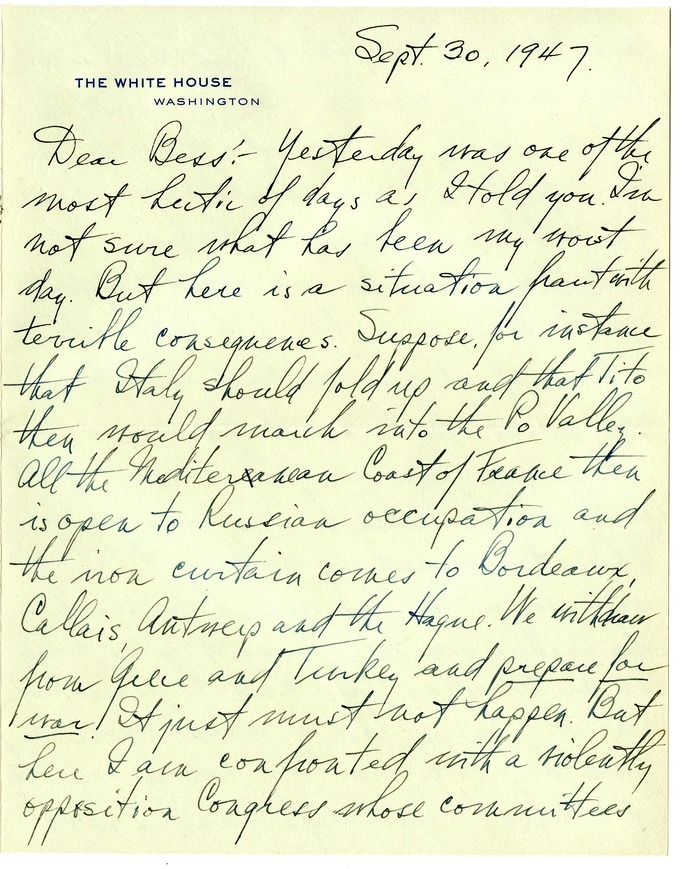 Sept. 30, 1947.
THE WHITE HOUSE
WASHINGTON
Dear Bess:- Yesterday was one of the
most hectic of days as I told you. I'm
not sure what has been my worst
day. But here is a situation fraut with
terrible consequences. Suppose, for instance
that Italy should fold up and that Tito
then would march into the Po Valley.
All the Mediterranean Coast of France then
is open to Russian occupation and
the iron curtain comes to Bordeaux,
Callais, Antwerp and the Hague. We withdraw
from Greece and Turkey and prepare for
war. It just must not happen. But
here I am confronted with a violently
opposition Congress whose committees